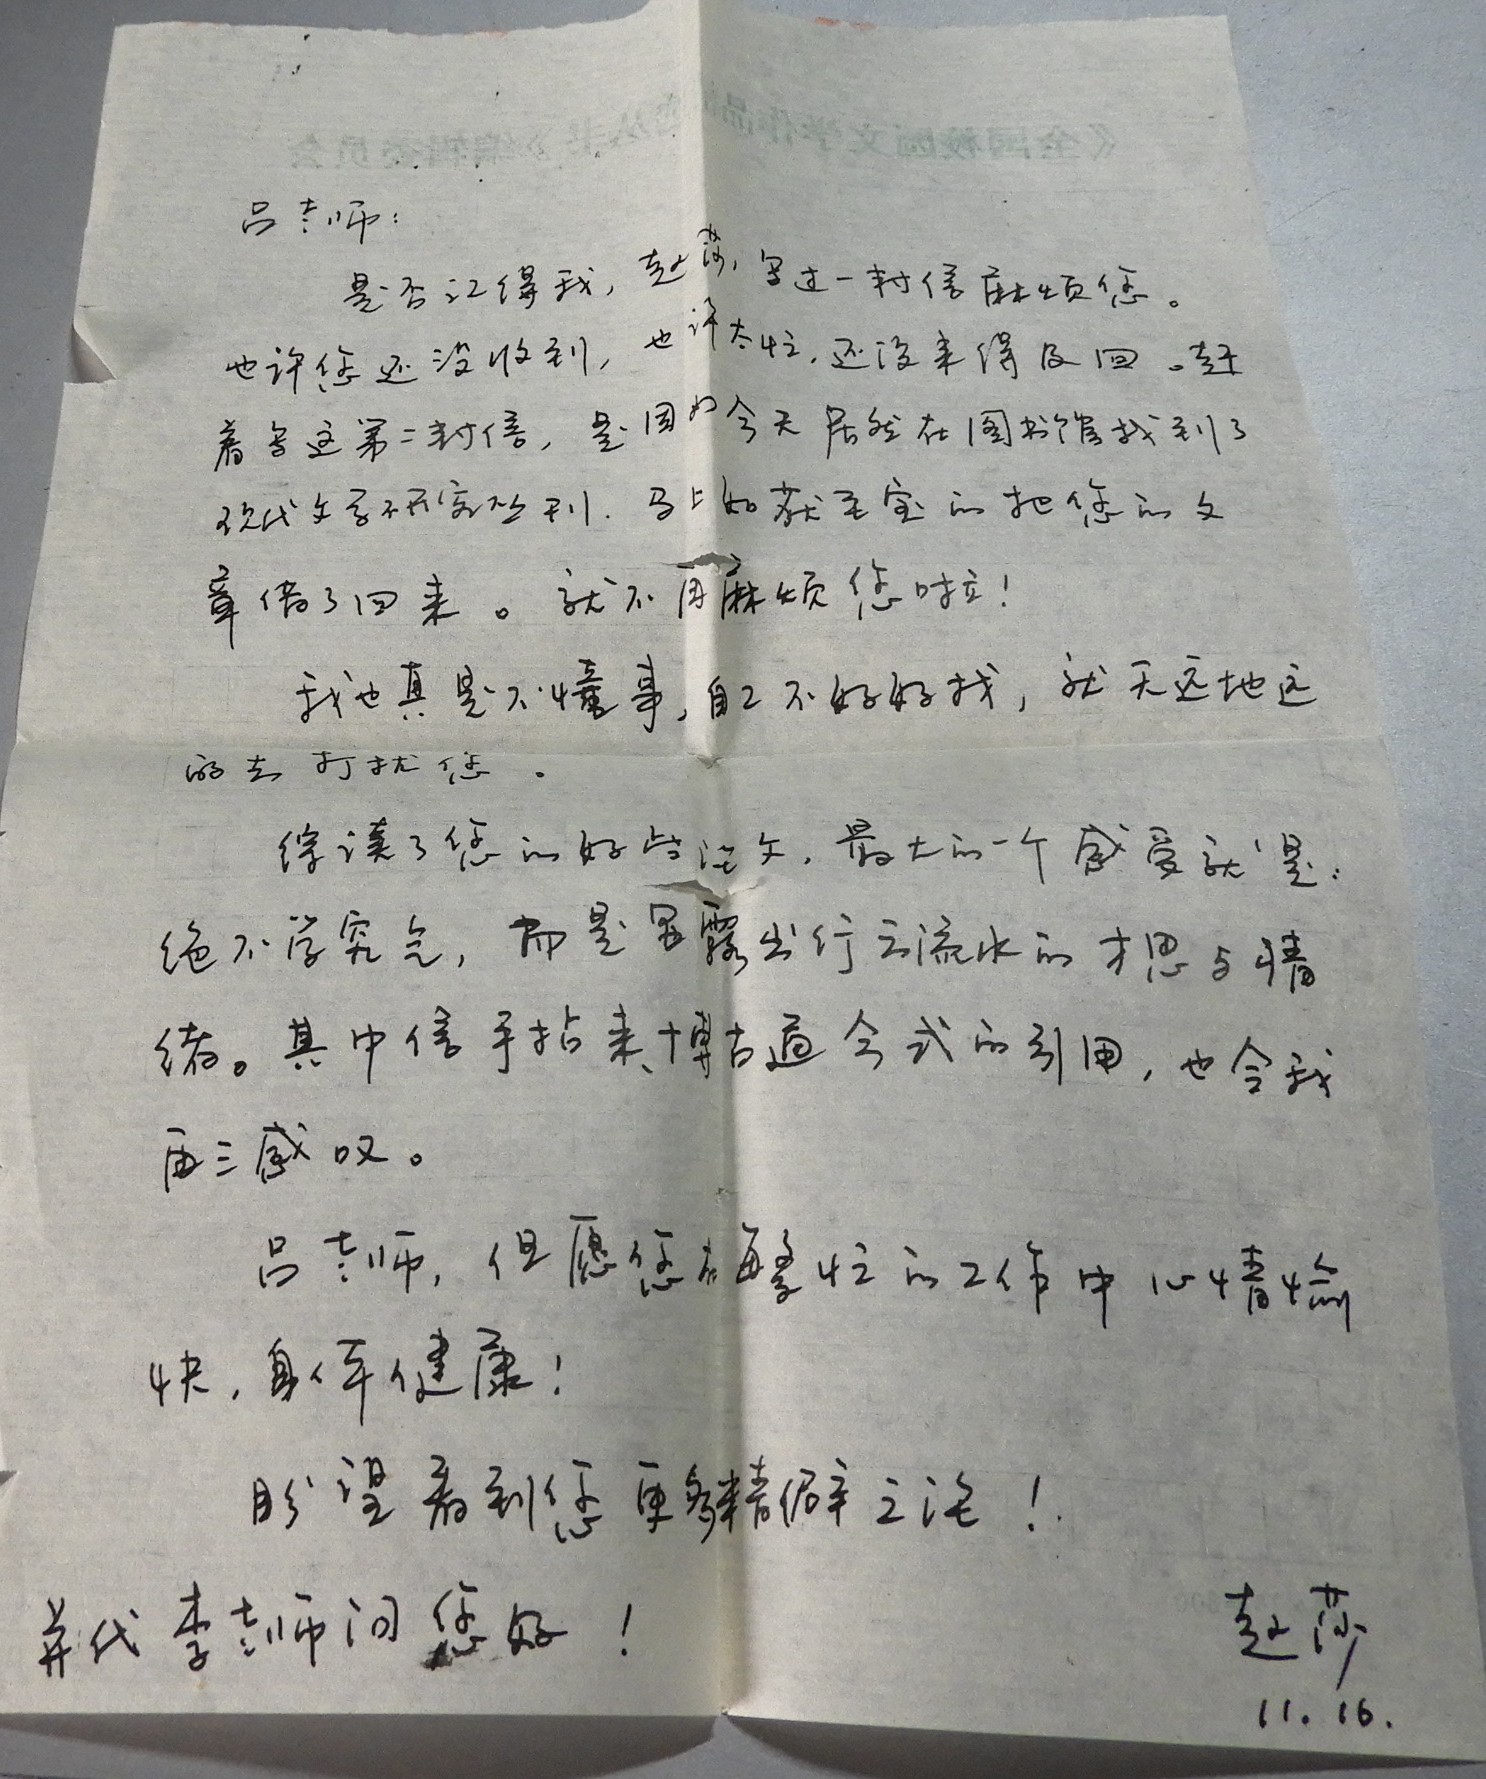 吕老师：
是否记得我，赵莎，写过一封信麻烦您。
也许您还没收到，也许太忙，还没来得及回。赶
着写这第二封信，是因为今天居然在图书馆找到了
现代文学研究丛刊．马上如获至宝的把您的文
章借了回来。就不再麻烦您啦！
我也真是不懂事，自己不好好找，就天远地远
的去打扰您．
综读了您的好些论文，最大的一个感受就是：
绝不学究气，而是显露出行云流水的才思与情
绪。其中信手拈来、博古通今式的引用，也令我
再三感叹。
吕老师，但愿您在每繁忙的工作中心情愉
快，身体健康！
盼望看到您更多精僻之论！
并代李老师问您好！
赵莎
11.16.